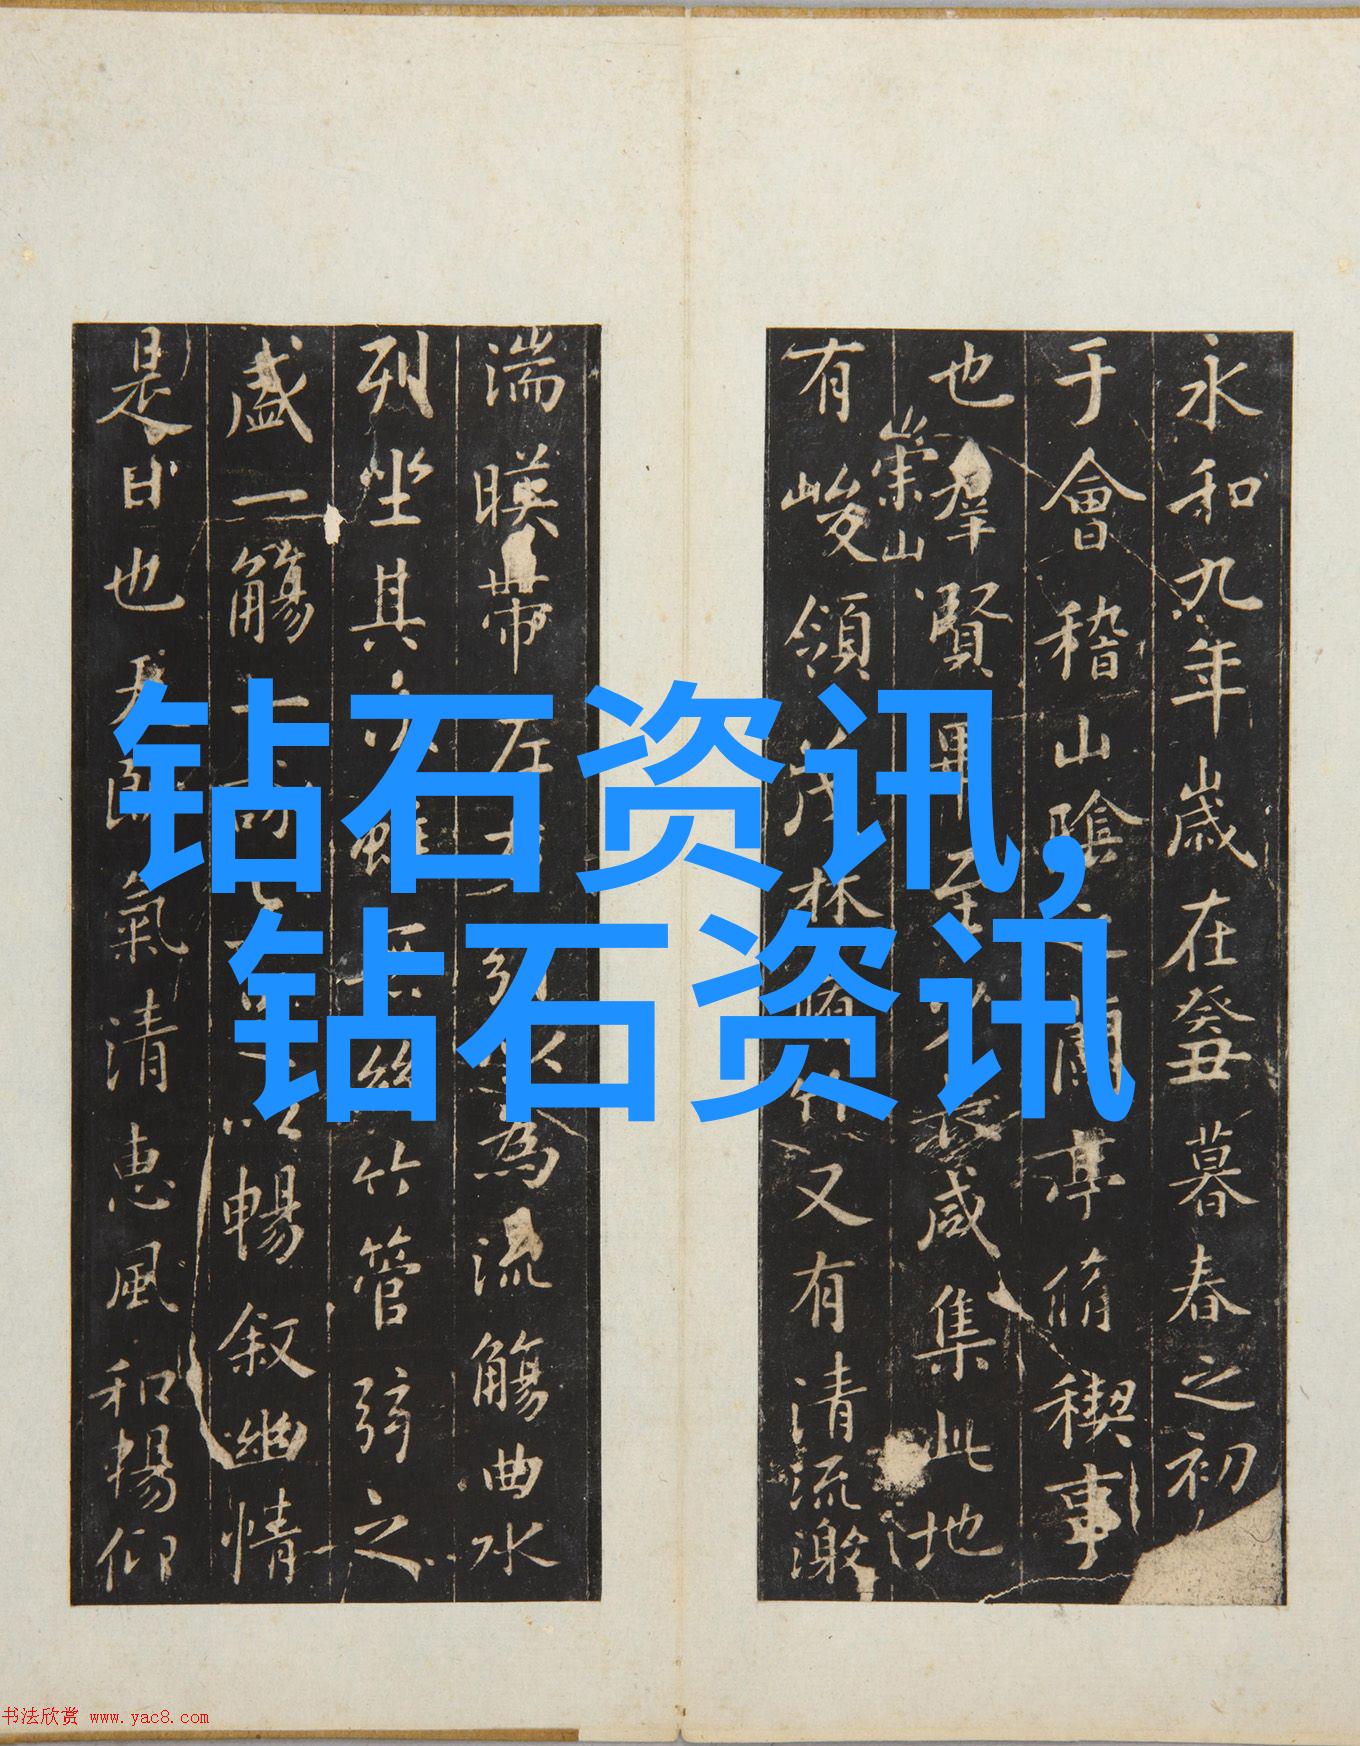 永和九年歲在癸丑暮春之初
于會稽山陰之蘭亭脩稧事
也羣賢畢至少長咸集此地
崇山
有峻領茂林脩竹又有清流激
湍暎帶左右引以為流觴曲水
列坐其次雖無絲竹管弦之
盛一觴一詠亦足以暢叙幽情
是日也天朗氣清惠風和暢仰
钻石资讯,
钻石资讯
书法欣赏 www.yac8.com